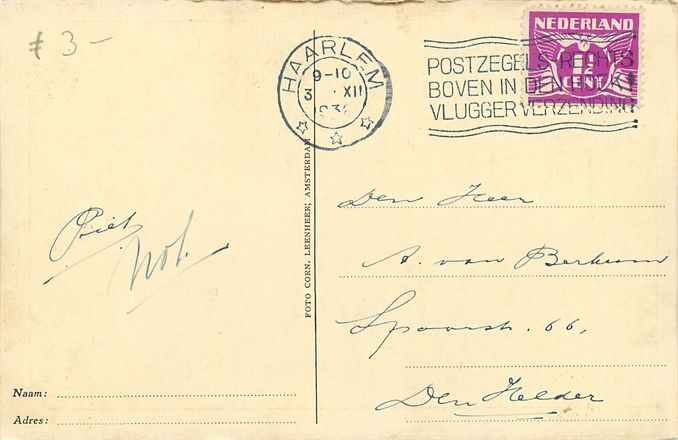 £ 3 -
HAARLEM
9-10
3 XII
193
POSTZEGELS RECHTS
BOVEN IN DEN HOEK
VLUGGER VERZENDING
NEDERLAND
1½
CENT
Piet
Not.
FOTO CORN. LEENHEER, AMSTERDAM
Den Heer
A. van Berkum
Spoorstr. 66,
Den Helder
Naam:
Adres: